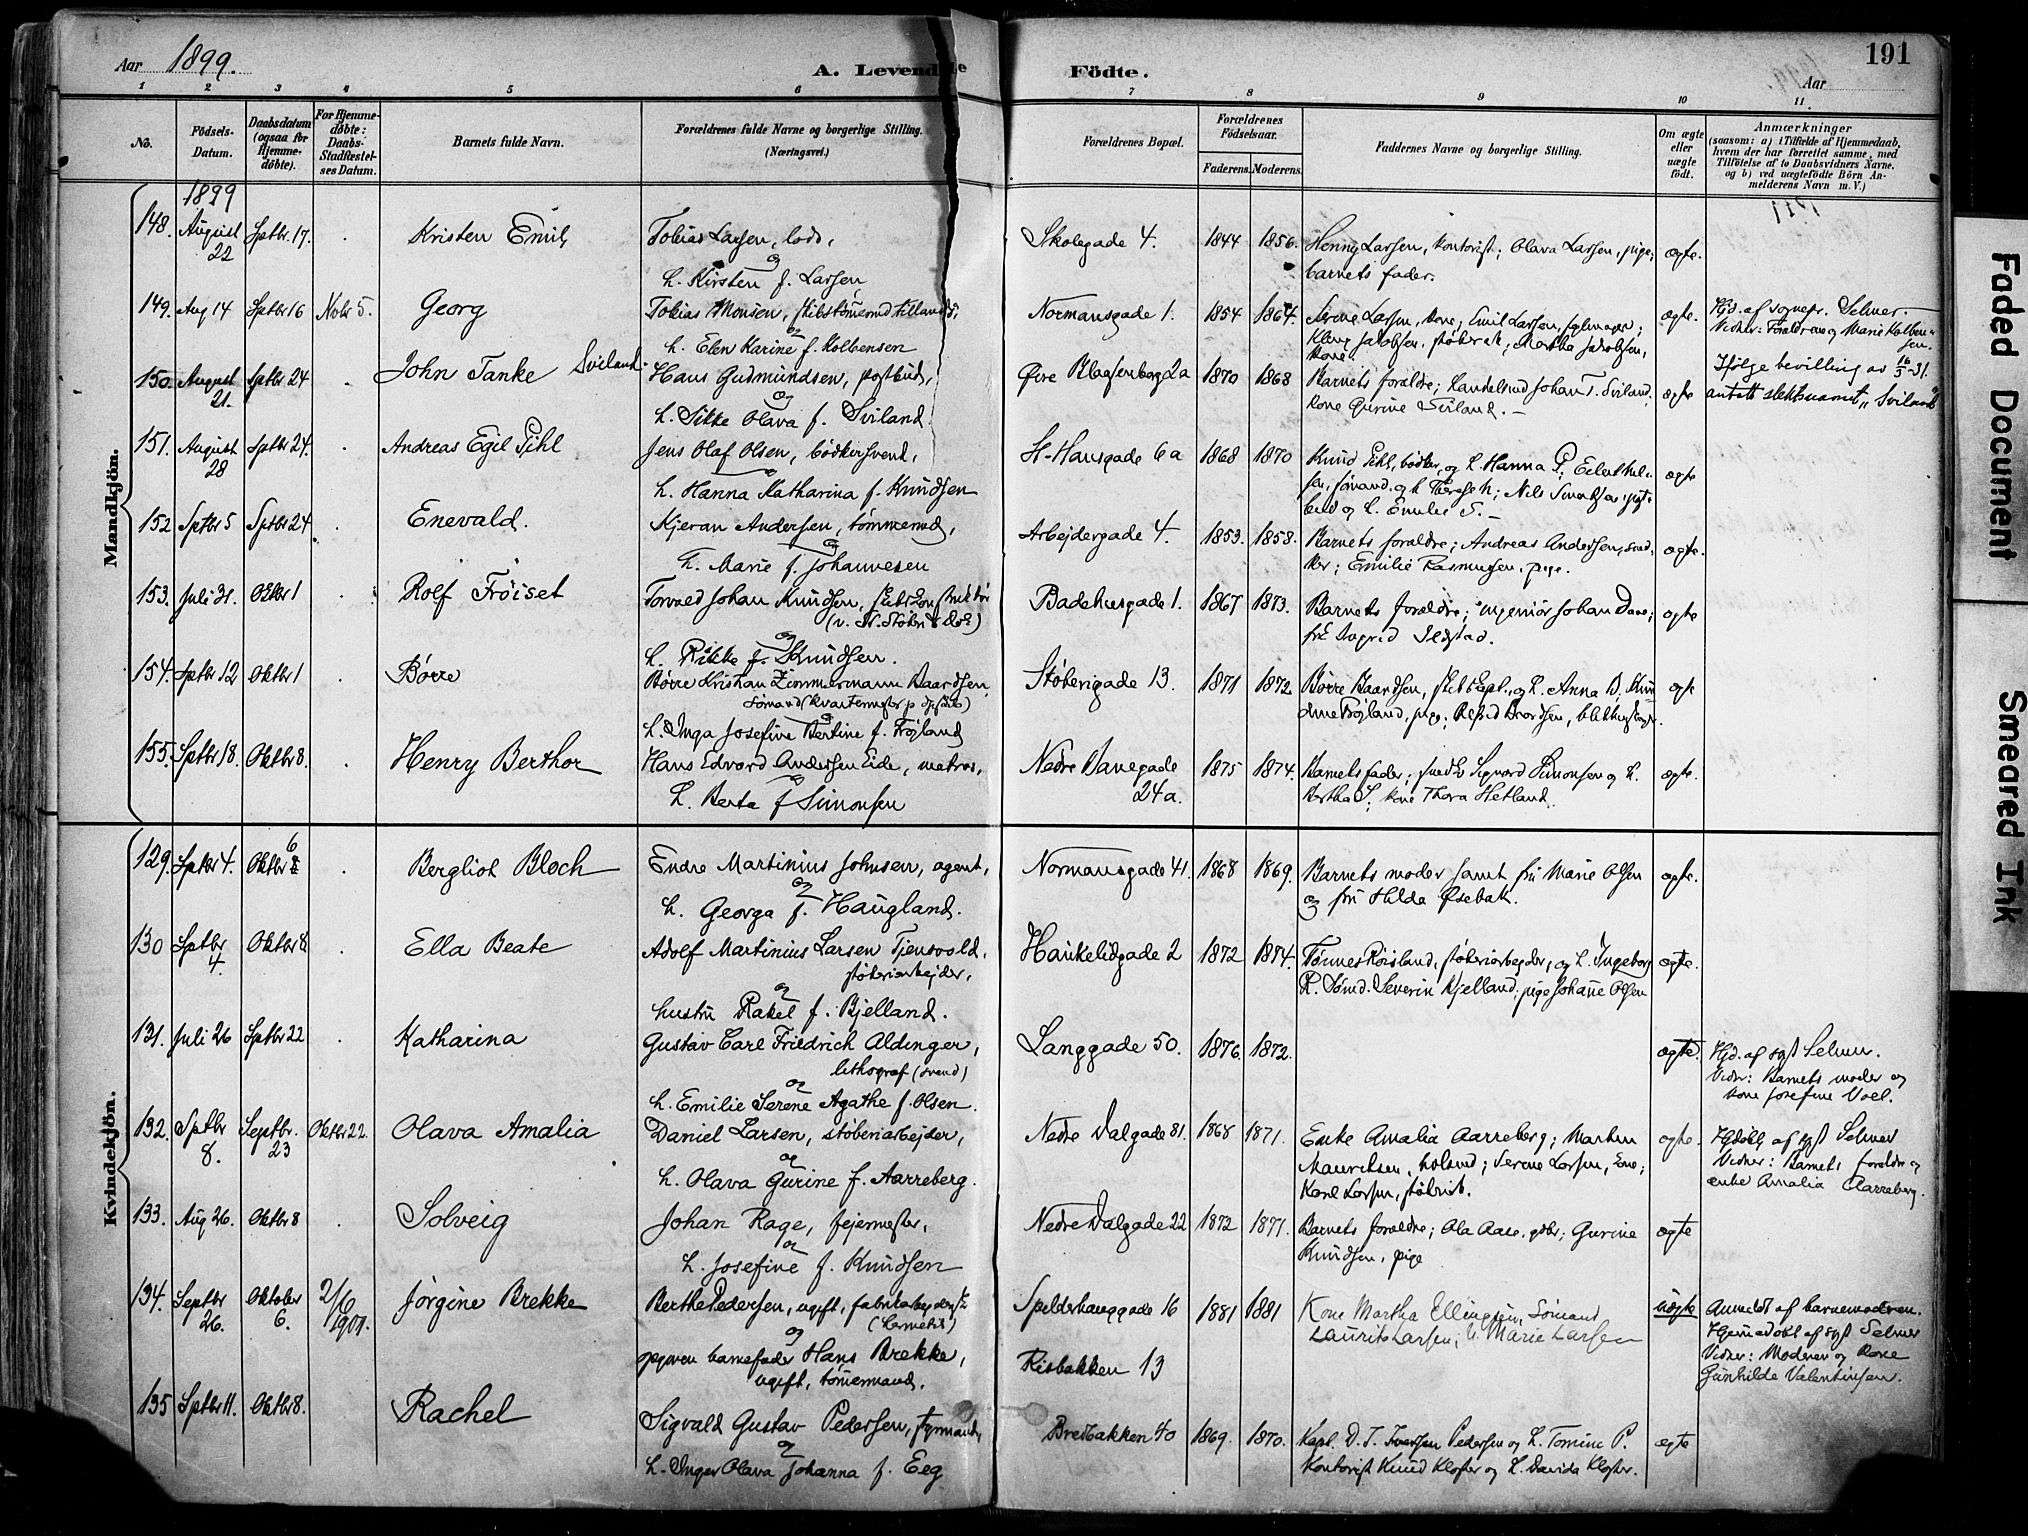 Aar 1899.
A. Levende
Födte.
191
Aar
1 2 3 4 5 6 7 8 9 10 11.
No.
Födsels-Datum.
Daabsdatum (ogsaa for Hjemme-döbte).
For Hjemme-döbte: Daabs-Stadfæstel-ses Datum.
Barnets fulde Navn.
Forældrenes fulde Navne og borgerlige Stilling. (Næringsvei.)
Forældrenes Bopæl.
Forældrenes Födselsaar.
Faderens. Moderens.
Faddernes Navne og borgerlige Stilling.
Om ægte eller uægte födt.
Anmærkninger
(saasom: a) i Tilfælde af Hjemmedaab, hvem der har forrettet samme, med Tilföielse af to Daabsvidners Navne. og b) ved uægtefödte Börn An-melderens Navn m. V.)
Mandkjön.
1899
148. August 22 Septbr. 17. Kristen Emil
Tobias Larsen, lods,
og
h. Kirsten f. Larsen
Skolegade 4. 1844 1856.
Henny Larsen, kontorist; Olava Larsen, pige;
barnets fader.
ægte.
149. Aug 14 Septbr 16 Novbr 5. Georg
Tobias Monsen,
og
h. Elen Karine f. Kolbensen
Normansgade 1. 1854 1864.
Serine Larsen, kone; Emil Larsen,
Jakobsen, Martha Jakobsen,
kone.
ægte.
Hjd. af sognepr. Selmer.
Vidner: Forældrene og Marie Kolben-
sen.
150. August 21. Septbr 24 John Tanke Sviland.
Hans Gudmundsen, postbud,
og
h. Sikke Olava f. Sviland.
Øvre Blaasenborg 2a 1870 1868
Barnets forældre; Handelsmd Johan T. Sviland,
kone Gurine Sviland.
ægte
Ifølge bevilling av 16/3-31.
antatt slektsnamet „Sviland"
151. August 28 Septbr 24. Andreas Egil Pihl
Jens Olaf Olsen, bødkersvend,
og
h. Hanna Katharina f. Knudsen
St-Hansgade 6a 1868 1870
Knud Pihl, bødker, og h. Hanna P.
og h. Therese
og h. Emilie S.
ægte
152 Septbr 5 Septbr 24 Enevald.
Kjeran Andersen, tømmermd,
og
h. Marie f. Johannesen
Arbejdergade 4. 1853. 1858.
Barnets forældre; Andreas Andersen, sned-
ker; Emilie Rasmussen, pige.
ægte.
153. Juli 31. Oktbr 1 Rolf Frøiset
Torvald Johan Knudsen,
(v. St. Støberi & Dok)
og
h. Rikke f. Knudsen.
Badehusgade 1. 1867 1873.
Barnets forældre; ingeniør Johan Daae;
frk Ingrid
ægte
154. Septbr 12 Oktbr 1 Børre
Børre Kristian Zimmermann Baardsen,
sømand
og
h. Inga Josefine Bertine f. Frøiland
Støberigade 13. 1871 1872.
Børre Baardsen, og h. Anna B.
Frøjland, pige;
ægte
155. Septbr 18. Oktbr 8. Henry Berthor
Hans Edvard Andersen Eide, matros,
og
h. Berta f Simonsen
Nedre Banegade
24a.
1875 1874.
Barnets fader; Sigvard Simonsen og h.
Bertha S; kone Thora Hetland.
ægte.
Kvindekjön.
129. Septbr 4. Oktbr 6 Bergliot Bloch
Endre Martinius Johnsen, agent,
og
h. Georga f. Haugland.
Normansgade 41. 1868 1869.
Barnets moder samt fru Marie Olsen
og fru Hilda Øsebak.
ægte.
130 Septbr 4. Oktbr 8 Ella Beate
Adolf Martinius Larsen Tjensvold,
støberiarbejder,
og
hustru Rakel f. Bjelland.
Haukeligade 2 1872 1874.
Tønnes Røisland, støberiarbejder, og h. Ingeborg
R. Sømd. Severin Kjelland; pige Johanne Olsen
ægte.
131. Juli 26 Septbr 22 Katharina
Gustav Carl Friedrich Aldinger,
lithograf (svend)
og
h. Emilie Serene Agathe f. Olsen.
Langgade 50. 1876. 1872.
ægte.
Hjd. af sgpst Selmer.
Vidner: Barnets moder og
kone Josefine Voel.
132. Septbr 8. Septbr. 23 Oktbr 22. Olava Amalia
Daniel Larsen, støberiarbejder,
og
h. Olava Gurine f. Aarreberg.
Nedre Dalgade 81. 1868 1871.
Enke Amalia Aarreberg; Morten
Mauritsen, Serine Larsen, kone;
Karl Larsen,
ægte.
Hjdøbt af sgpst Selmer
Vidner: Barnets forældre og
enke Amalia Aarreberg.
133. Aug 26. Oktbr 8 Solveig
Johan Rage, fejermester,
og
h. Josefine f. Knudsen
Nedre Dalgade 22 1872 1871.
Barnets forældre; Ola Aase, Gurine
Knudsen, pige
ægte
134. Septbr 26. Oktober 6. 2/6 1901. Jørgine Brekke
Berthe Pedersen, ugift, fabrikarbejderske
(hermetik)
og
opgiven barnefader Hans Brekke,
ugift, tømermand.
Spilderhauggade 16 1881 1881
Risbakken 13
Kone Martha Ellingsen, Sømand
Laurits Larsen, h. Marie Larsen
uægte
Anmeldt af barnemoderen.
Hjemmedøbt af sgpst Selmer
Vidner: Moderen og kone
Gunhilde Valentinsen.
135 Septbr 11. Oktbr 8. Rachel
Sigvald Gustav Pedersen, styrmand,
og
h. Inger Olava Johanna f. Eeg
Bredbakken 40 1869. 1870.
Kapt. D. T. Iversen Pedersen og h. Tomine P.
Kontorist Knud Kloster og h. Davida Kloster.
ægte
Faded Document
Smeared Ink